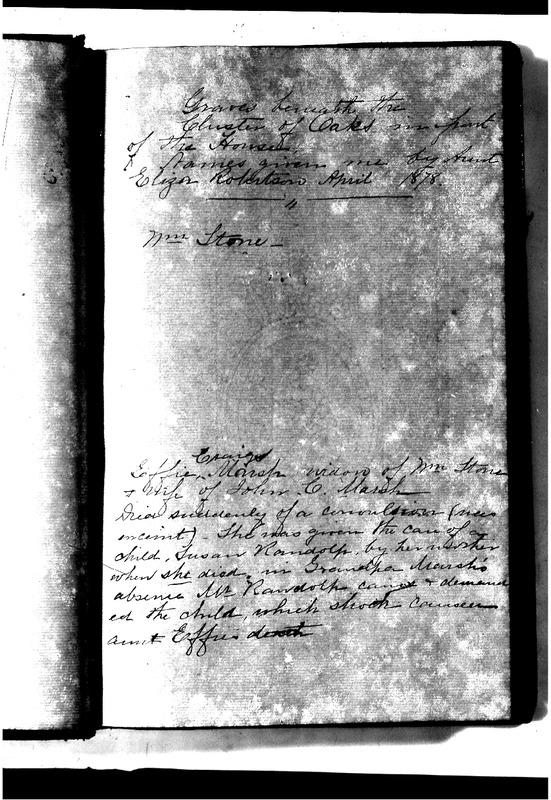 Graves beneath the
Cluster of Oaks in front
of the House.
Names given me by Aunt
Eliza Robertson April 1878.
Wm Stone –
Craig
Effie Marsh widow of Wm Stone
+ wife of John C. Marsh
Died suddenly of a convulsion (was
enceint). She was given the care of a
child, Susan Randolph, by her mother
when she died, in Grandpa Marsh's
absence Mr Randolph came + demand
ed the child, which shock caused
aunt Effies death